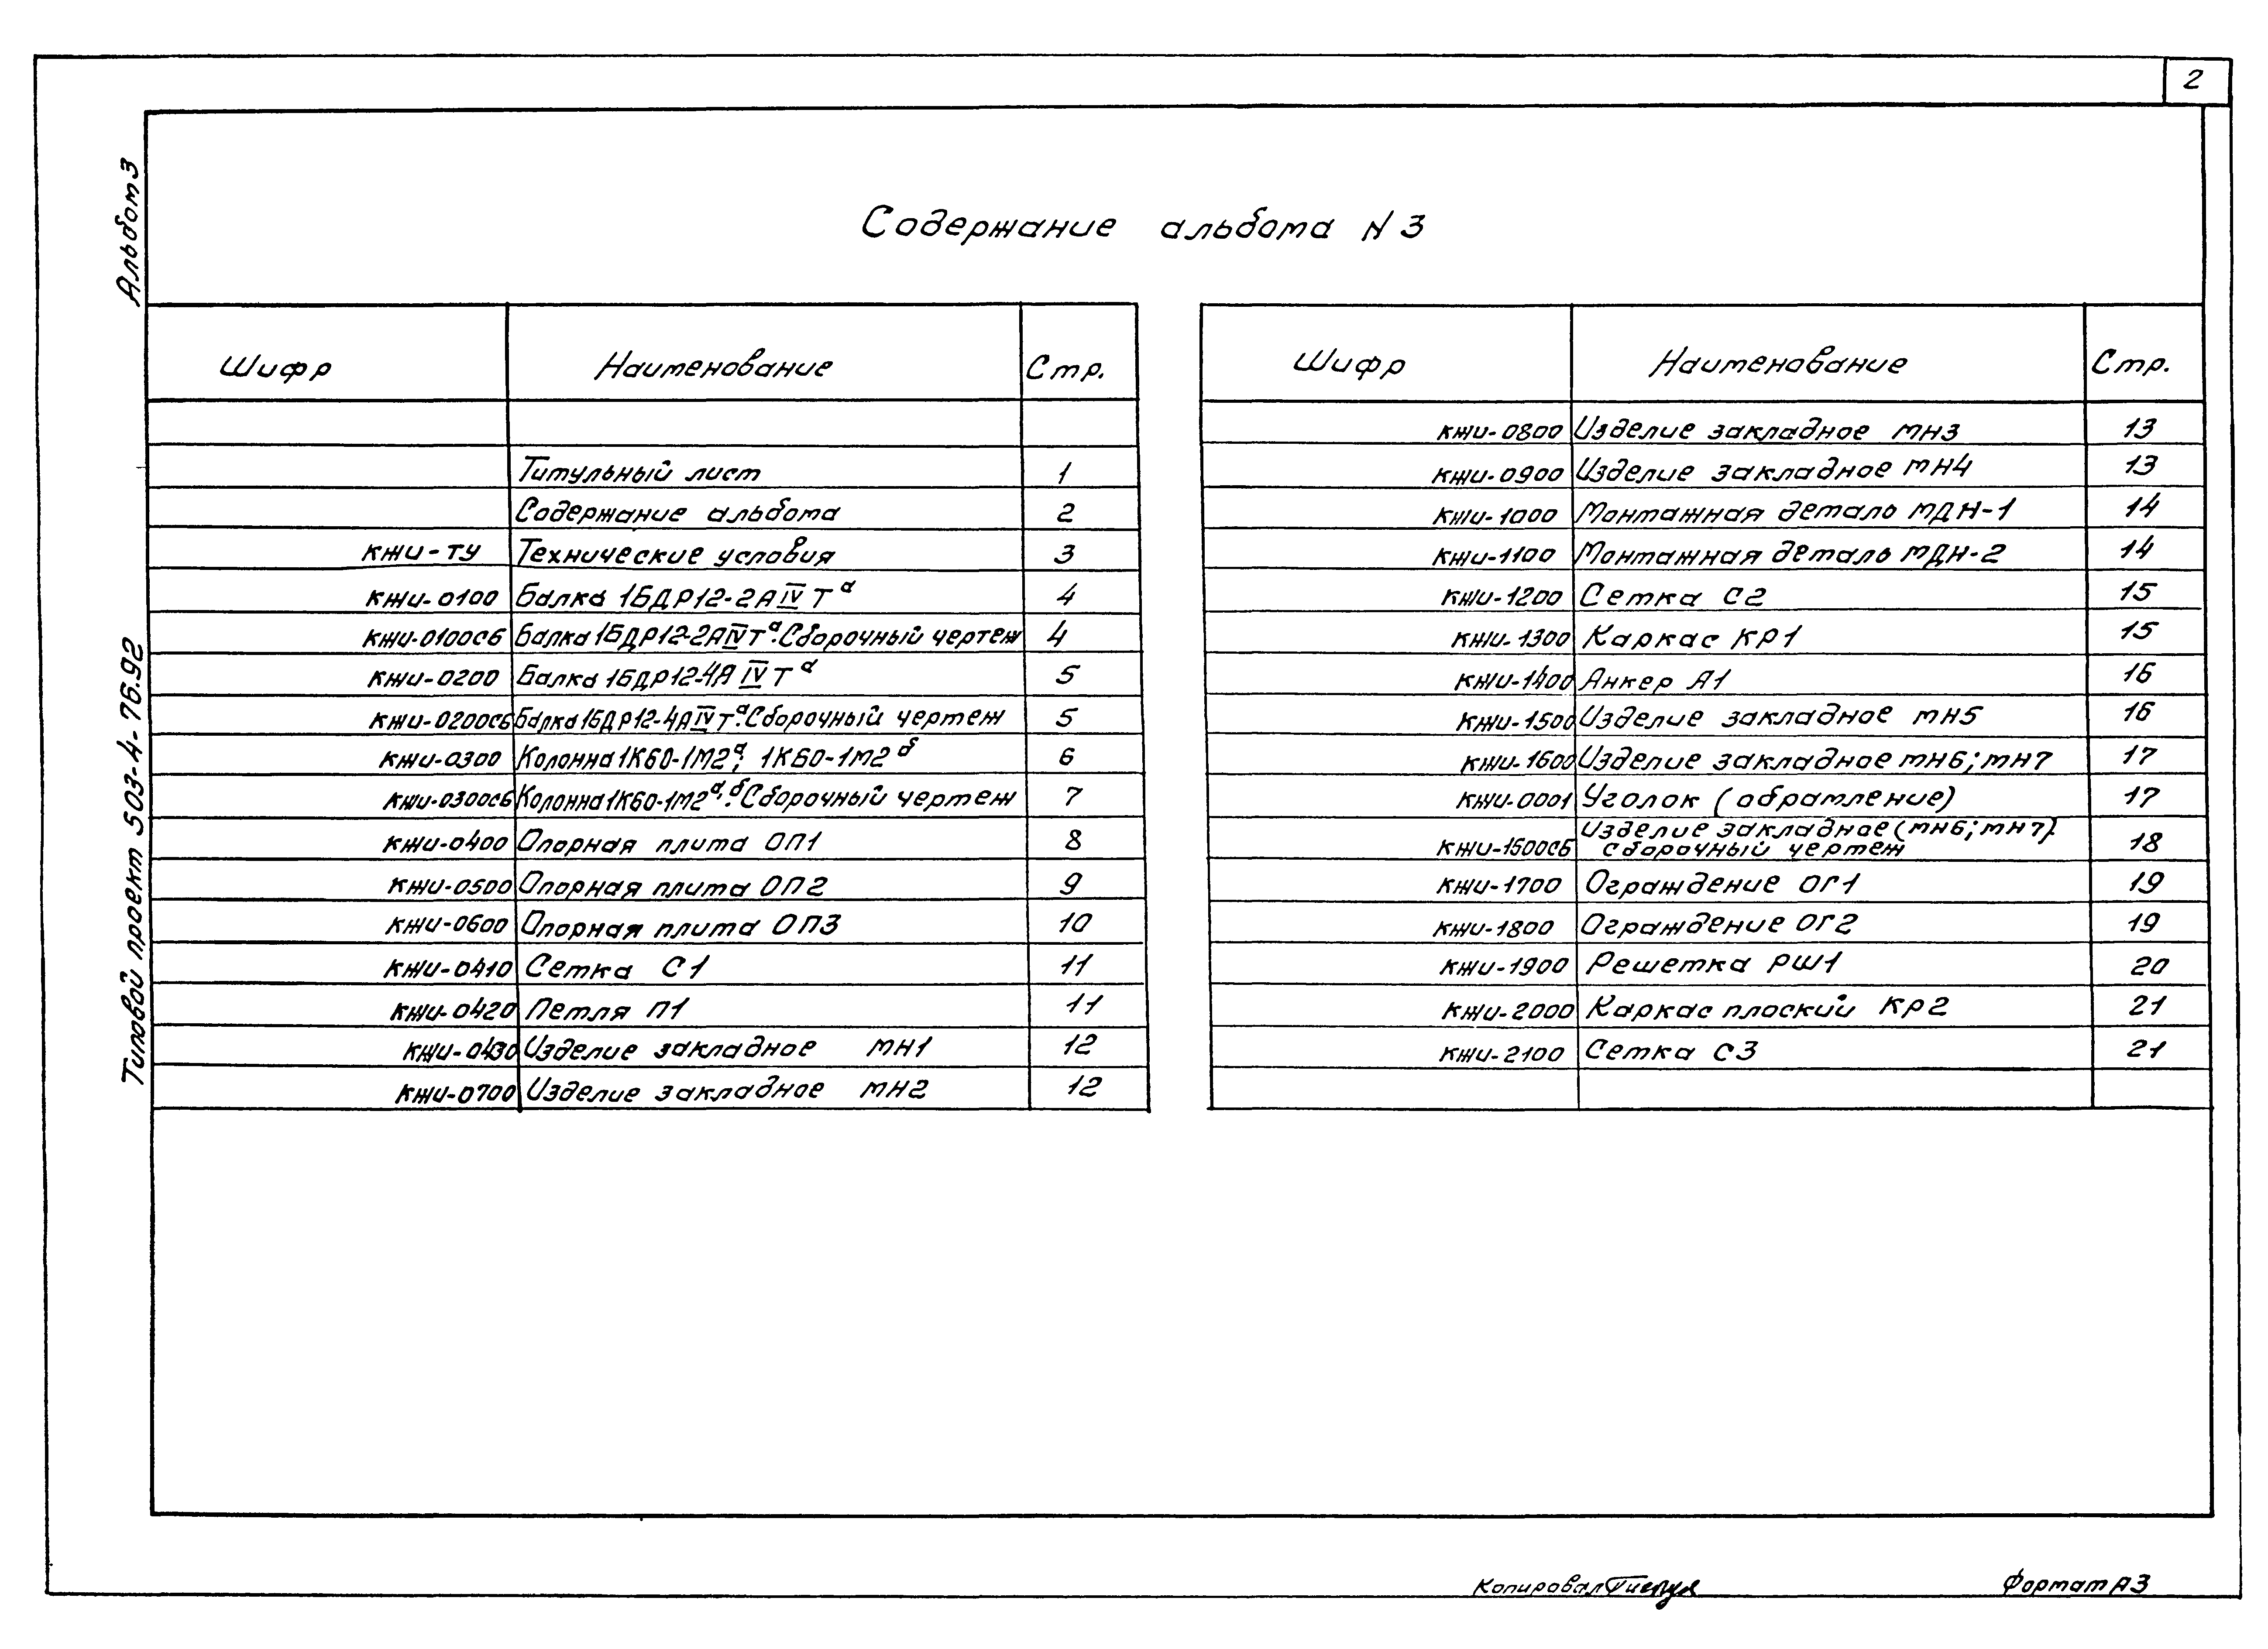 2
Альбом 3
Типовой проект 503-4-76.92
Содержание альбома N 3
Шифр Наименование Стр.
Титульный лист 1
Содержание альбома 2
КЖИ-ТУ Технические условия 3
КЖИ-0100 Балка 1БДР12-2АIVТа 4
КЖИ-0100СБ Балка 1БДР12-2АIVТа. Сборочный чертеж 4
КЖИ-0200 Балка 1БДР12-4АIVТа 5
КЖИ-0200СБ Балка 1БДР12-4АIVТа. Сборочный чертеж 5
КЖИ-0300 Колонна 1К60-1М2а; 1К60-1М2б 6
КЖИ-0300СБ Колонна 1К60-1М2а,б. Сборочный чертеж 7
КЖИ-0400 Опорная плита ОП1 8
КЖИ-0500 Опорная плита ОП2 9
КЖИ-0600 Опорная плита ОП3 10
КЖИ-0410 Сетка С1 11
КЖИ-0420 Петля П1 11
КЖИ-0430 Изделие закладное МН1 12
КЖИ-0700 Изделие закладное МН2 12
Шифр Наименование Стр.
КЖИ-0800 Изделие закладное МН3 13
КЖИ-0900 Изделие закладное МН4 13
КЖИ-1000 Монтажная деталь МДН-1 14
КЖИ-1100 Монтажная деталь МДН-2 14
КЖИ-1200 Сетка С2 15
КЖИ-1300 Каркас КР1 15
КЖИ-1400 Анкер А1 16
КЖИ-1500 Изделие закладное МН5 16
КЖИ-1600 Изделие закладное МН6; МН7 17
КЖИ-0001 Уголок (обрамление) 17
КЖИ-1600СБ Изделие закладное (МН6; МН7).
Сборочный чертеж 18
КЖИ-1700 Ограждение ОГ1 19
КЖИ-1800 Ограждение ОГ2 19
КЖИ-1900 Решетка РШ1 20
КЖИ-2000 Каркас плоский КР2 21
КЖИ-2100 Сетка С3 21
Копировал Формат А3